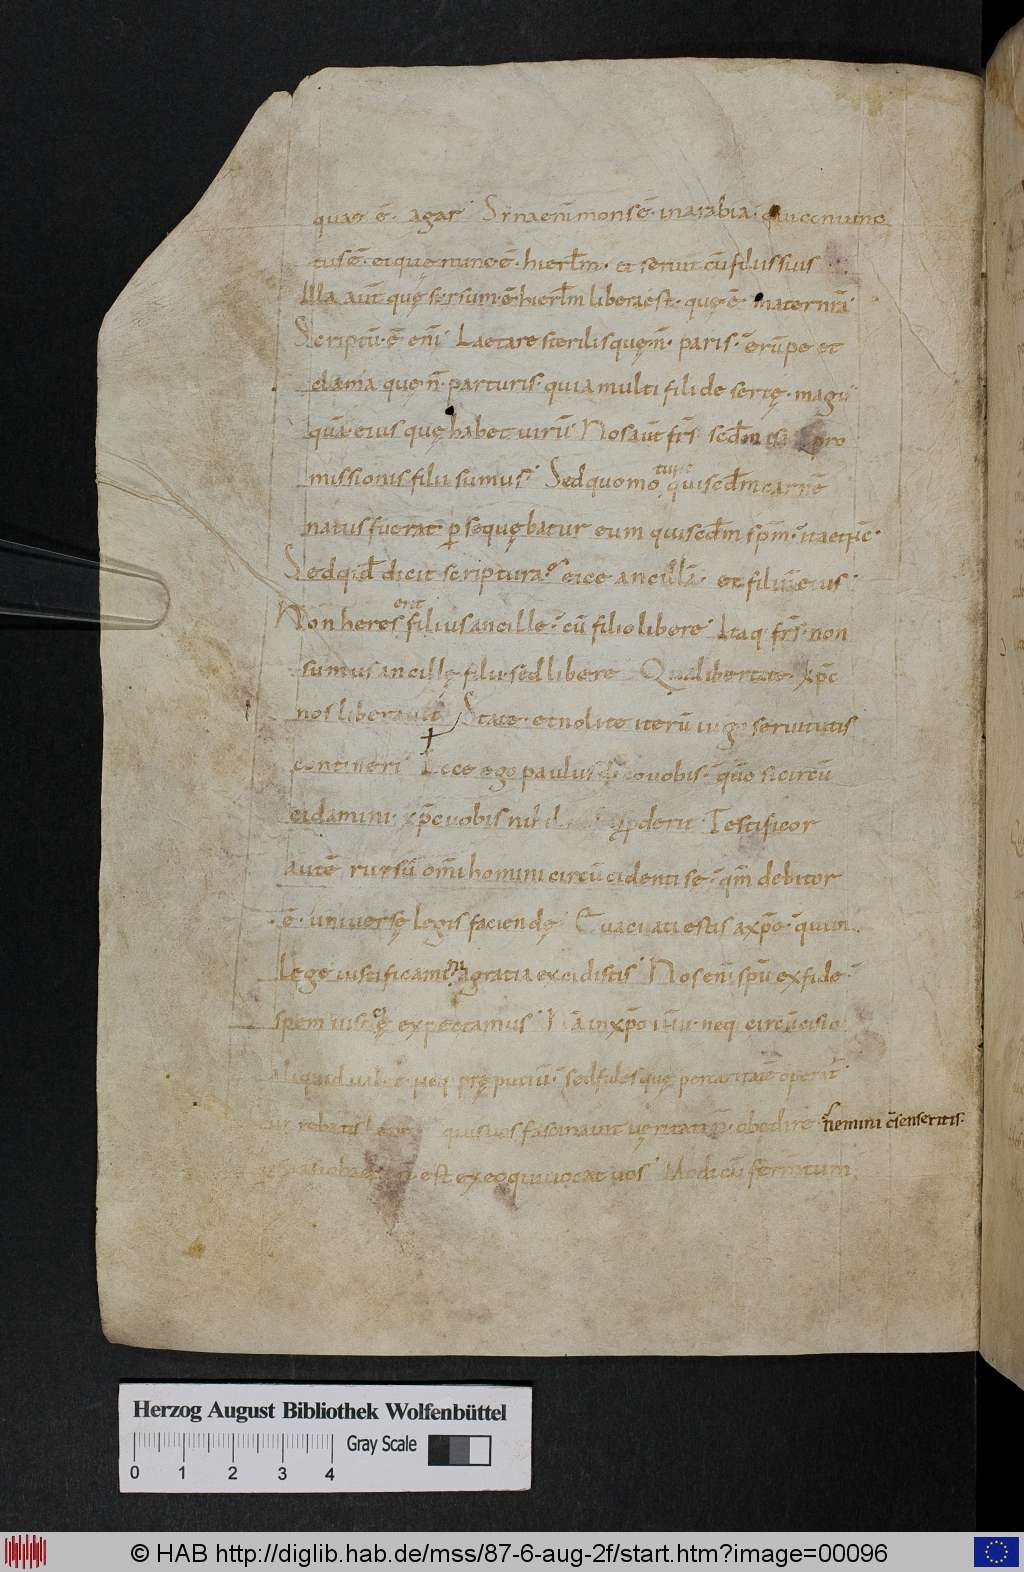 quae ē· agar· Syna enī mons ē· in arabia· qui coniunc
tus ē· ei que nunc ē· hierl̄m· et seruit cū filiis suis
Illa aūt que sursum ē hierl̄m libera est· quę ē· mater nr̄a·
Scriptū· ē enī· Laetare sterilis quę n̄· paris· ērūpe et
clama quę n̄· parturis· quia multi filii desertę· magis
quā eius quę habet uirū· Nos aūt fr̄s scd̄m pro
missionis filii sumus· Sed quomo qui scd̄m carnē
natus fuerat p̱sequębatur eum qui scd̄m sp̄m· ita et nc̄·
Sed qid dicit scriptura· eice ancillā· et filiū eius·
Non heres erit filius ancille· cū filio libere· Itaq· fr̄s· non
sumus ancillę filii· sed libere Qua libertate· xp̄c
nos liberauit State· et nolite iterū iugo seruitutis
contineri· Ecce ego paulus dico uobis· qm̄ si circū
cidamini· xp̄c uobis nihil p̱derit Testificor
autē rursū om̄i homini circūcidenti se· qm̄ debitor
ē· uniuersę legis faciendę· Euacuati estis a xp̄o· qui in
Lege iustificamini agratia excidistis· Nos enī spū ex fide·
spem iusticię expectamus· Nā in xp̄o ih̄u· neq circūcisio
aliquid ualet· neq· pręputiū· sed fides quę per caritatē operat̄·
quis uos fascinauit ueritati n̄· obedire· nemini c̄senseritis·
est ex eo qui uocat uos· Modicū fermtum
Herzog August Bibliothek Wolfenbüttel
Gray Scale
0 1 2 3 4
© HAB http://diglib.hab.de/mss/87-6-aug-2f/start.htm?image=00096